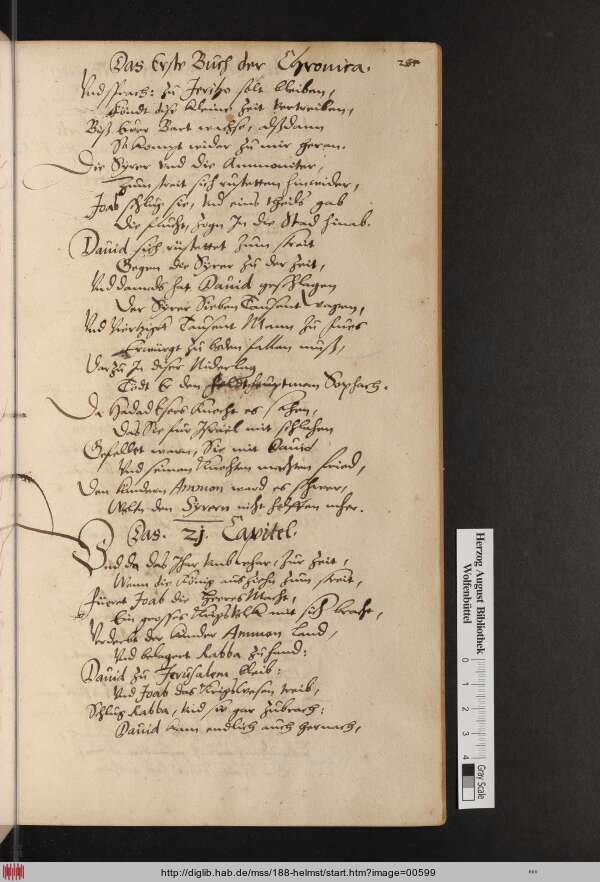 Das Erste Buch der Chronica. 284
Vnd sprach: zu Jeriho solt bleiben,
Köndt diese kleine Zeit vertreiben,
Biß Ewer Bart wachse, alßdann
So kompt wider zu mir heran.
Die Syrer vnd die Ammoniter,
Zum streit sich rustetten hinwider,
Joab schlug sie, vnd eins theils gab
Die flucht, zogn In die Stad hinab.
Dauid sich rüstettet zum streit
Gegen die Syrer zu der Zeit,
Vnd damals hat Dauid geschlagen
Der Syrer Sieben Tausent wagen,
Vnd Viertzigt Tausent Mann zu fues
Erwürgt zu boden fallen mußt,
Darzu In diser Niderlag
Tödt Er den Feldthauptman Sophach.
Da HadadEsers Knecht es sehen,
Das Sie für Israel mit schlahen
Gefellet warn, Sie mit Dauid
Vnd seinen Knechten machten fried,
Den kindern Ammon ward es schwer,
Wolte den Syrern nicht helffen mher.
Das. 21. Capitel.
Vnd da das Jhar umb wehar, zur Zeit,
Wann die König ausziehn zum streit,
Füeret Joab die HeeresMacht,
Ein grosses kriegsVolk mit sich bracht,
Verderbt der kinder Ammon Land,
Vnd belagert Rabba zuhand:
Dauid zu Jerusalem bleib:
Vnd Joab das kriegswesen treib,
Schlug Rabba, vnd sie gar zubrach:
Dauid kam endlich auch hernach,
Herzog August Bibliothek
Wolfenbüttel
0 1 2 3 4
Gray Scale
http://diglib.hab.de/mss/188-helmst/start.htm?image=00599